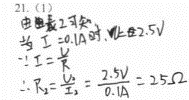 21. (1)
由图2可知
当 I =0.1A时, U=2.5V
∵ I = U/R
∴ R₂ = U₂/I₂ = 2.5V/0.1A = 25Ω